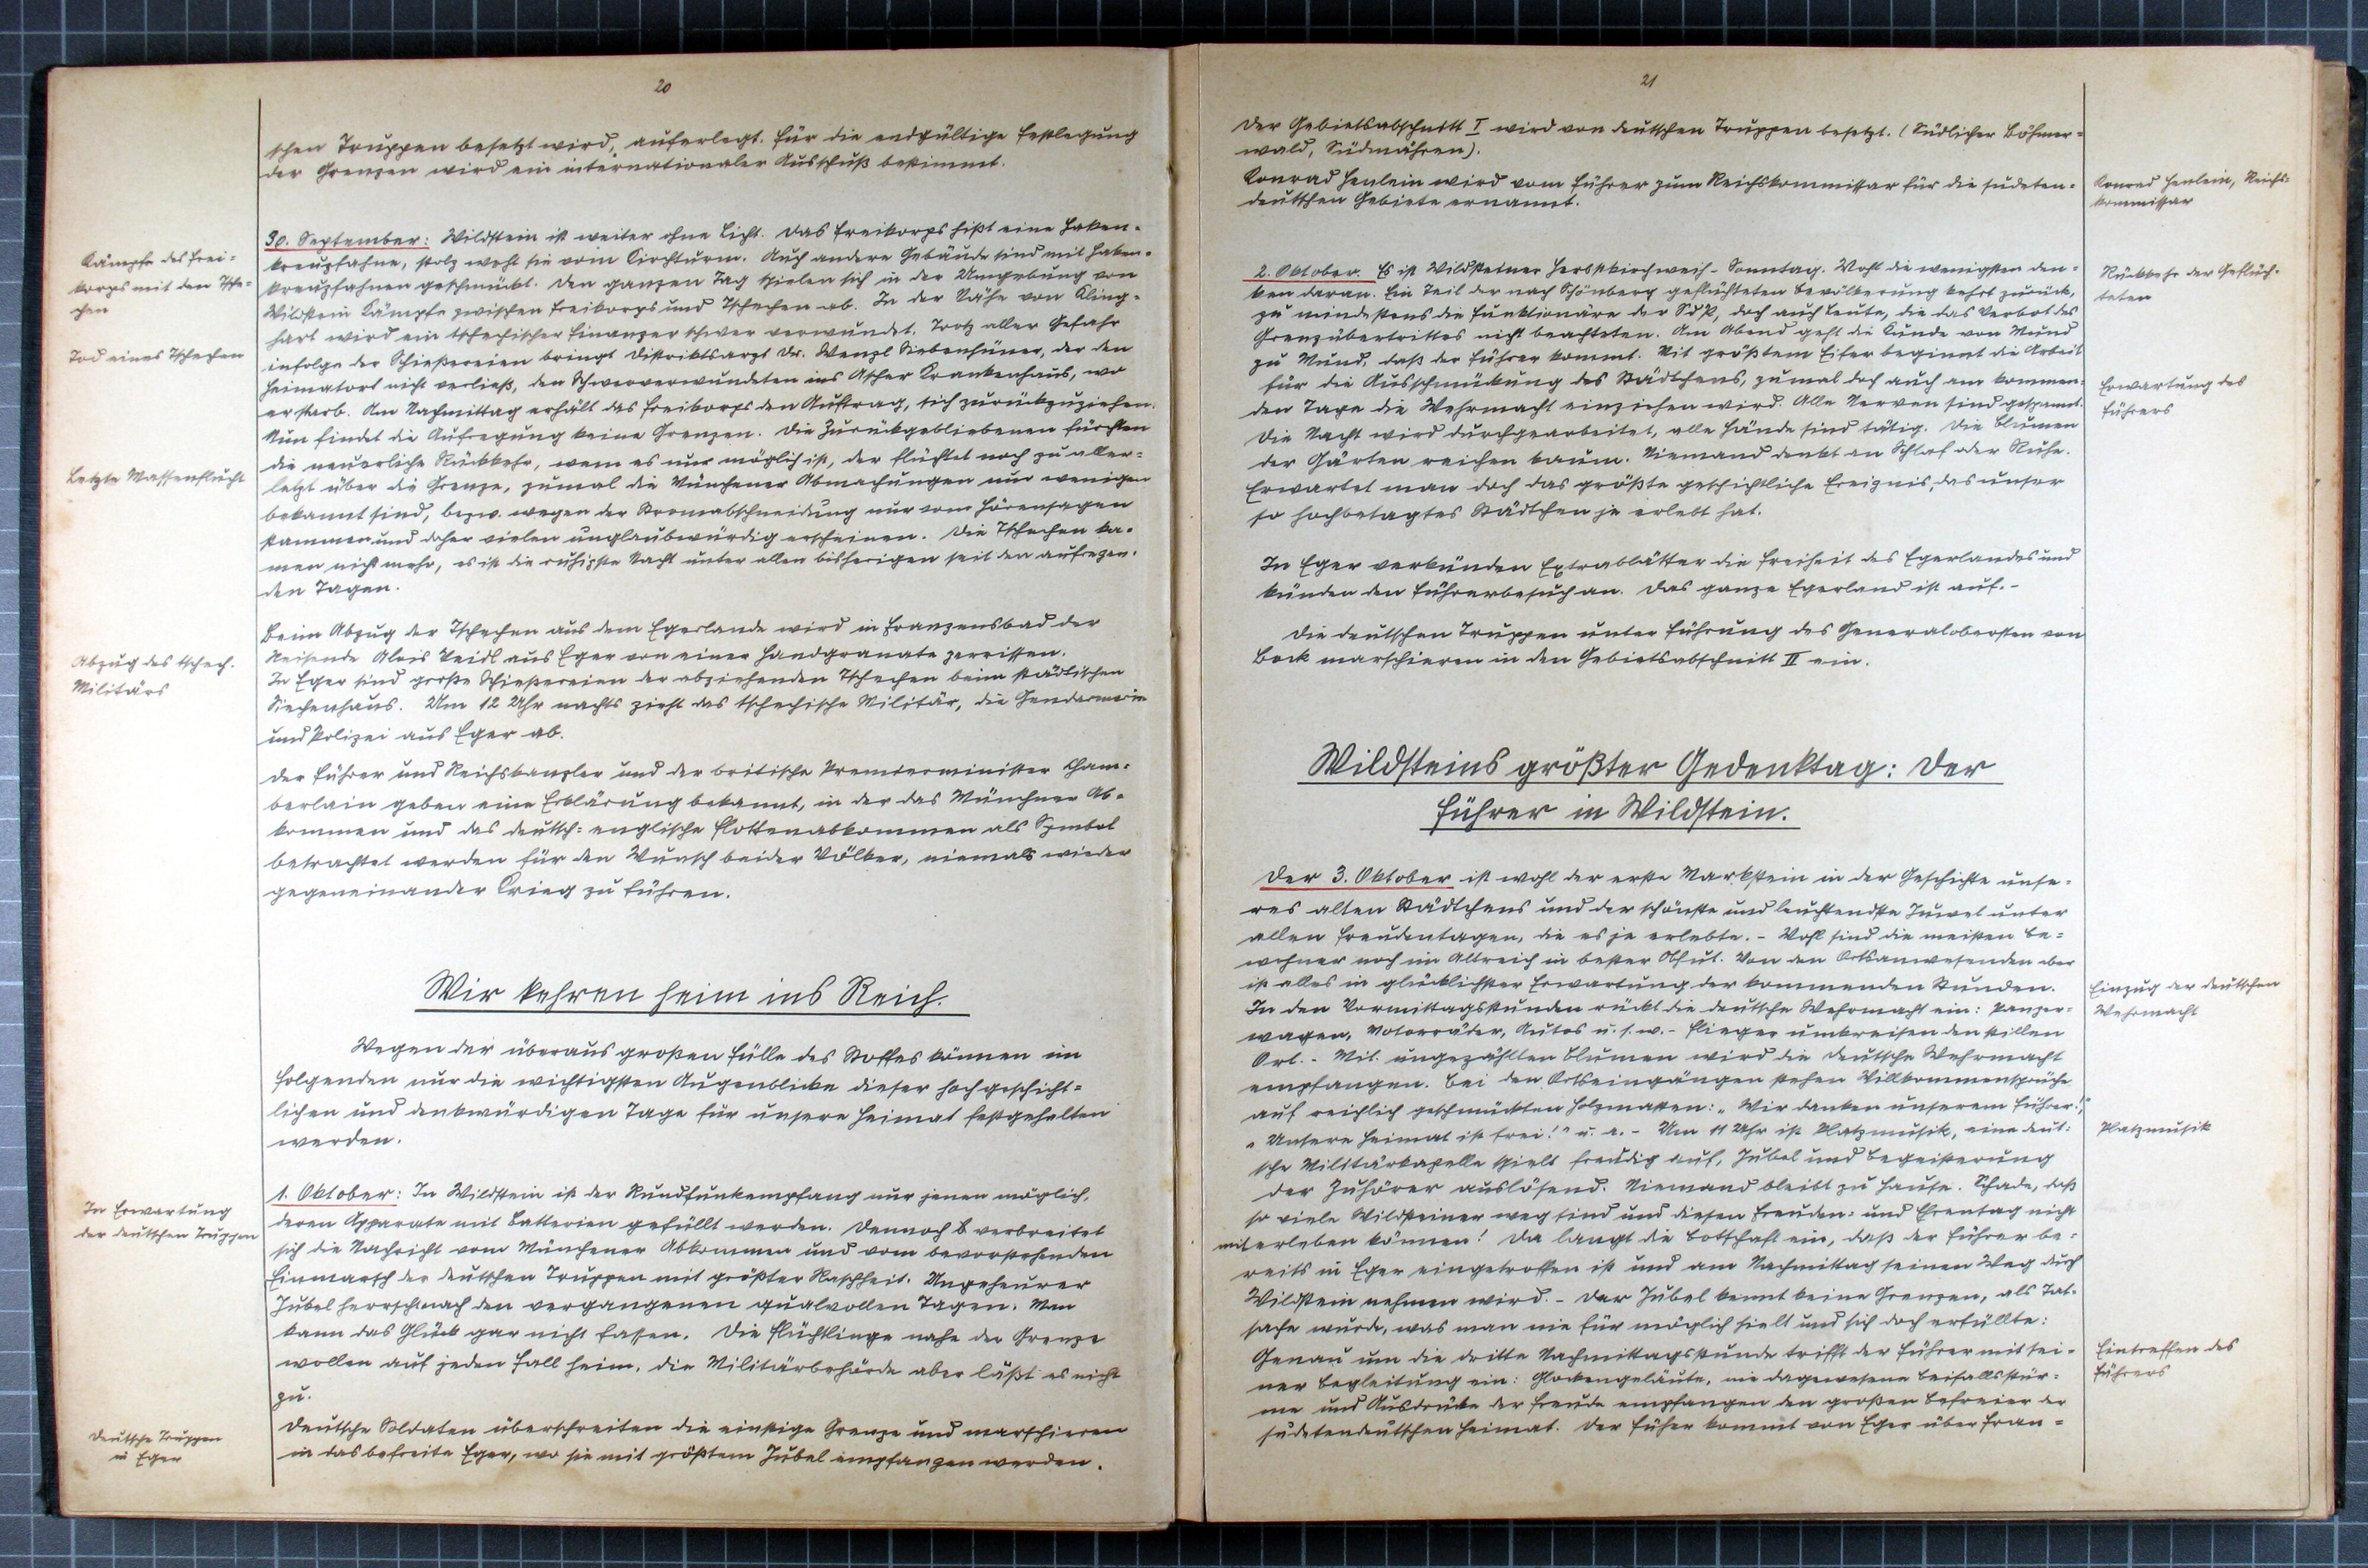 20
schen Truppen besetzt wird, auferlegt. Für die endgültige Festlegung
der Grenzen wird ein internationaler Ausschuß bestimmt.
30. September: Wildstein ist weiter ohne Licht. Das Freikorps hißt eine Haken-
kreuzfahne, stolz weht sie vom Kirchturm. Auch andere Gebäude sind mit Haken-
kreuzfahnen geschmückt. Den ganzen Tag spielen sich in der Umgebung von
Wildstein Kämpfe zwischen Freikorps und Tschechen ab. In der Nähe von Kling-
hart wird ein tschechischer Finanzer schwer verwundet. Trotz aller Gefahr
infolge der Schießereien bringt Distriktsarzt Dr. Wenzl Siebenhüner, der den
Heimatort nicht verließ, den Schwerverwundeten ins Ascher Krankenhaus, wo
er starb. Am Nachmittag erhält das Freikorps den Auftrag, sich zurückzuziehen.
Nun findet die Aufregung keine Grenzen. Die Zurückgebliebenen fürchten
die neuerliche Rückkehr, wem es nur möglich ist, der flüchtet noch zu aller-
letzt über die Grenze, zumal die Münchener Abmachungen nur wenigen
bekannt sind, bezw. wegen der Stromabschneidung nur vom Hörensagen
stammen und daher vielen unglaubwürdig erscheinen. Die Tschechen ka-
men nicht mehr, es ist die ruhigste Nacht unter allen bisherigen seit den aufregen-
den Tagen.
Beim Abzug der Tschechen aus dem Egerlande wird in Franzensbad der
Reisende Alois Peidl aus Eger von einer Handgranate zerrissen.
In Eger sind große Schießereien der abziehenden Tschechen beim städtischen
Siechenhaus. Um 12 Uhr nachts zieht das tschechische Militär, die Gendarmerie
und Polizei aus Eger ab.
Der Führer und Reichskanzler und der britische Premierminister Cham-
berlain geben eine Erklärung bekannt, in der das Münchner Ab-
kommen und das deutsch-englische Flottenabkommen als Symbol
betrachtet werden für den Wunsch beider Völker, niemals wieder
gegeneinander Krieg zu führen.
Wir kehren heim ins Reich.
Wegen der überaus großen Fülle des Stoffes können im
folgenden nur die wichtigsten Augenblicke dieser hochgeschicht-
lichen und denkwürdigen Tage für unsere Heimat festgehalten
werden.
1. Oktober: In Wildstein ist der Rundfunkempfang nur jenen möglich,
deren Apparate mit Batterien gefüllt werden. Dennoch verbreitet
sich die Nachricht vom Münchener Abkommen und vom bevorstehenden
Einmarsch der deutschen Truppen mit größter Raschheit. Ungeheurer
Jubel herrscht nach den vergangenen qualvollen Tagen. Man
kann das Glück gar nicht fassen. Die Flüchtlinge nahe der Grenze
wollen auf jeden Fall heim, die Militärbehörde aber läßt es nicht
zu.
Deutsche Soldaten überschreiten die einstige Grenze und marschieren
in das befreite Eger, wo sie mit größtem Jubel empfangen werden.
Kämpfe des Frei-
korps mit den Tsche-
chen
Tod eines Tschechen
Letzte Massenflucht
Abzug des tschech.
Militärs
In Erwartung
der deutschen Truppen
Deutsche Truppen
in Eger
21
Der Gebietsabschnitt I wird von deutschen Truppen besetzt. (Südlicher Böhmer-
wald, Südmähren).
Konrad Henlein wird vom Führer zum Reichskommissar für die sudeten-
deutschen Gebiete ernannt.
2. Oktober. Es ist Wildsteiner Herbstkirchweih-Sonntag. Wohl die wenigsten den-
ken daran. Ein Teil der nach Schönberg geflüchteten Bevölkerung kehrt zurück,
zu mindestens die Funktionäre der SdP, doch auch Leute, die das Verbot des
Grenzübertrittes nicht beachteten. Am Abend geht die Kunde von Mund
zu Mund, daß der Führer kommt. Mit größtem Eifer beginnt die Arbeit
für die Ausschmückung des Städtchens, zumal doch auch am kommen-
den Tage die Wehrmacht einziehen wird. Alle Nerven sind gespannt.
Die Nacht wird durchgearbeitet, alle Hände sind tätig. Die Blumen
der Gärten reichen kaum. Niemand denkt an Schlaf oder Ruhe.
Erwartet man doch das größte geschichtliche Ereignis, das unser
so hochbetagtes Städtchen je erlebt hat.
In Eger verkünden Extrablätter die Freiheit des Egerlandes und
künden den Führerbesuch an. Das ganze Egerland ist auf. -
Die deutschen Truppen unter Führung des Generalobersten von
Bock marschieren in den Gebietsabschnitt II ein.
Wildsteins größter Gedenktag: Der
Führer in Wildstein.
Der 3. Oktober ist wohl der erste Markstein in der Geschichte unse-
res alten Städtchens und der schönste und leuchtendste Juwel unter
allen Freudentagen, die es je erlebte. - Wohl sind die meisten Be-
wohner noch im Altreich in bester Obhut. Von den Ortsanwesenden aber
ist alles in glücklichster Erwartung der kommenden Stunden.
In den Vormittagsstunden rückt die deutsche Wehrmacht ein: Panzer-
wagen, Motorräder, Autos u. s. w. - Flieger umkreisen den stillen
Ort. - Mit ungezählten Blumen wird die deutsche Wehrmacht
empfangen. Bei den Ortseingängen stehen Willkommensprüche
auf reichlich geschmückten Holzmasten: „Wir danken unserem Führer!",
„Unsere Heimat ist frei!" u. a. - Um 11 Uhr ist Platzmusik, eine deut-
sche Militärkapelle spielt freudig auf, Jubel und Begeisterung
der Zuhörer auslösend. Niemand bleibt zu Hause. Schade, daß
so viele Wildsteiner weg sind und diesen Freuden- und Ehrentag nicht
miterleben können! Da langt die Botschaft ein, daß der Führer be-
reits in Eger eingetroffen ist und am Nachmittag seinen Weg durch
Wildstein nehmen wird. - Der Jubel kennt keine Grenzen, als Tat-
sache wurde, was man nie für möglich hielt und sich doch erfüllte:
Genau um die dritte Nachmittagsstunde trifft der Führer mit sei-
ner Begleitung ein: Glockengeläute, nie dagewesene Beifallsstür-
me und Ausdrücke der Freude empfangen den großen Befreier der
sudetendeutschen Heimat. Der Füher kommt von Eger über Fran-
Konrad Henlein, Reichs-
kommissar
Rückkehr der Geflüch-
teten
Erwartung des
Führers
Einzug der deutschen
Wehrmacht
Platzmusik
Eintreffen des
Führers